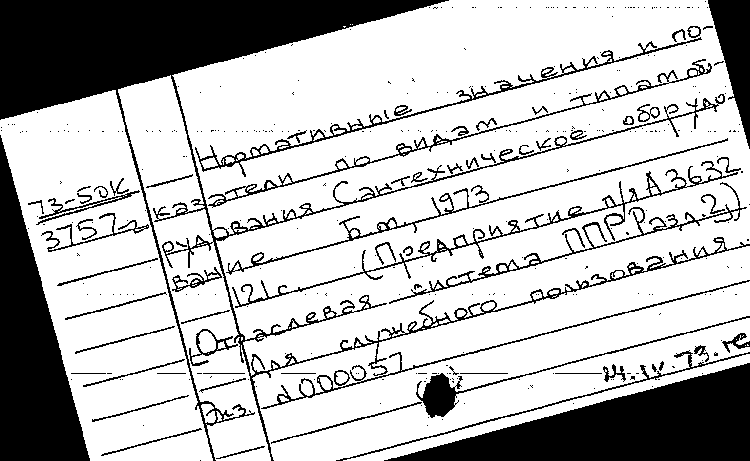 73-50К
3757-2
Нормативные значения и по-
казатели по видам и типам об-
рудования Сантехническое оборудо-
вание Б.м., 1973
121с. (Предприятие п/я А3632.
Отраслевая система ППР. Разд.2)
Для служебного пользования.
Экз. №000057.
14.IV.73.ге